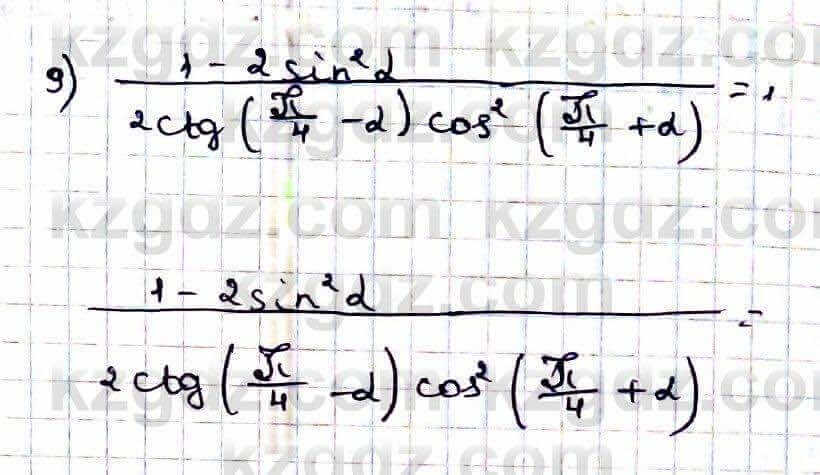 kzgdz.com kzgdz.com
9) (1 - 2 sin²α) / (2 ctg (π/4 - α) cos² (π/4 + α)) = 1
kzgdz.com kzgdz.com
(1 - 2 sin²α) / (2 ctg (π/4 - α) cos² (π/4 + α)) =